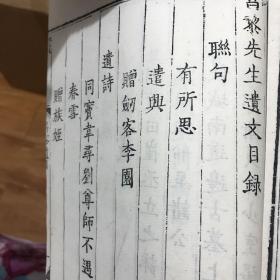 昌黎先生遺文目録
聯句
有所思
遣興
贈劒客李園
遺詩
同竇韋尋劉尊師不遇
春雪
贈族姪